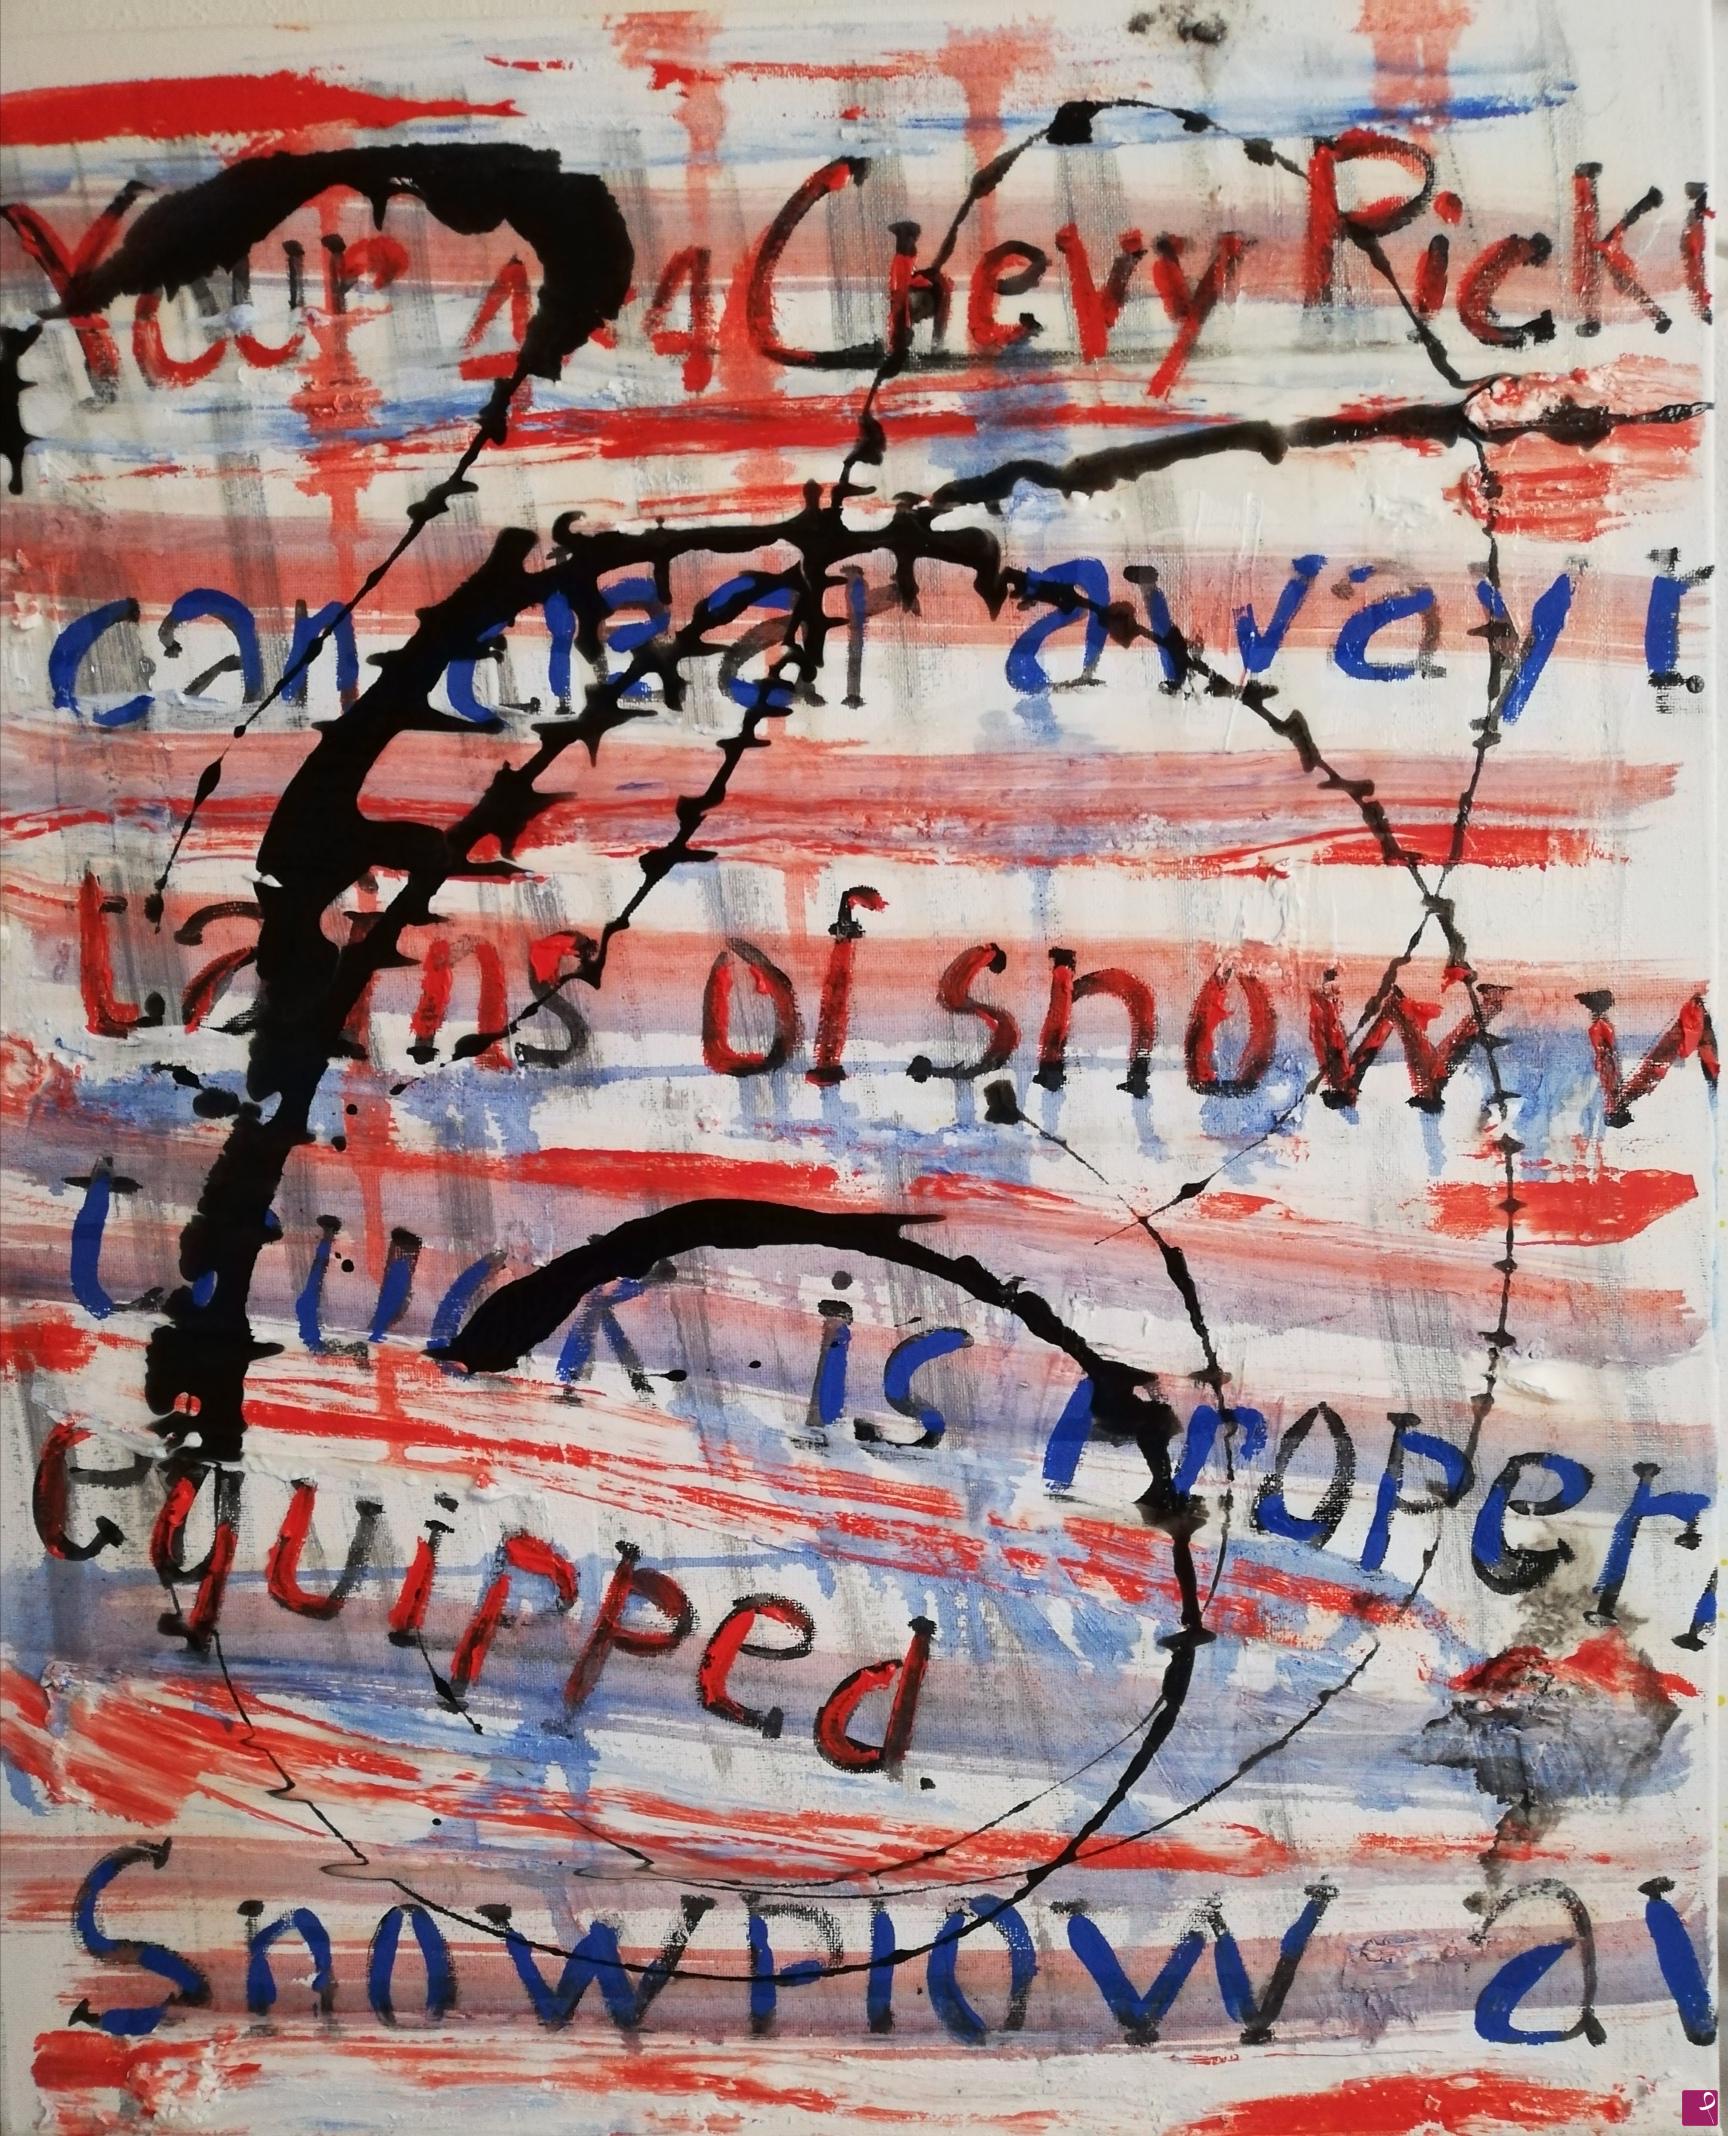 Your 4x4 Chevy Ricki
can clear away
tains of snow
truck is proper
equipped.
Snowplow